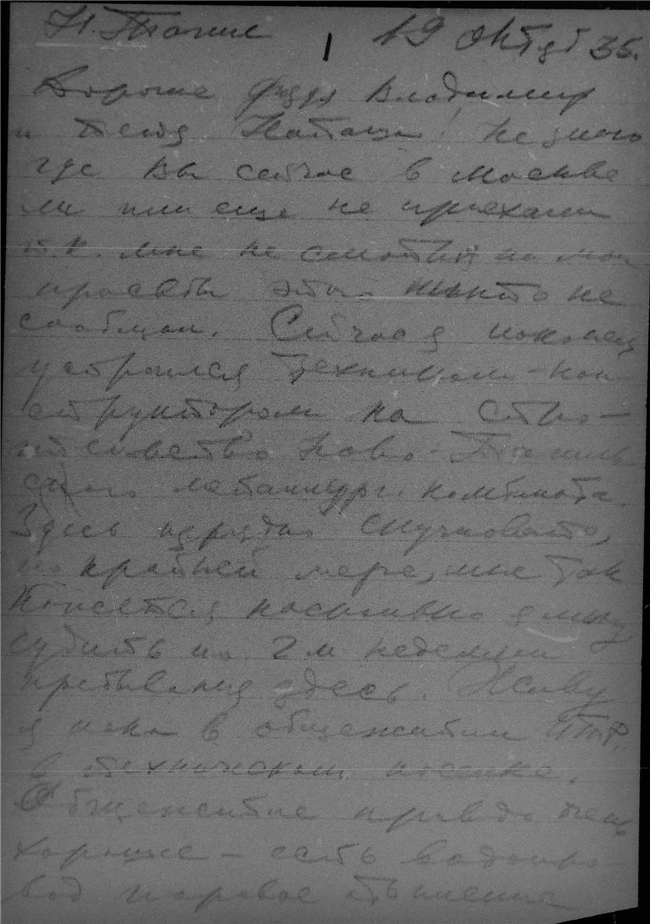 Н. Тагил 19 октяб 35.
Дорогие дядя Владимир
и тетя Наташа! Не знаю
где Вы сейчас в Москве
ли или еще не приехали
т.к. мне не смотря на мои
просьбы этого никто не
сообщил. Сейчас я наконец
устроился техником-кон-
структором на строи-
тельство Ново-Тагиль
ского металлург. комбината.
Здесь изрядно скучновато,
по крайней мере, мне так
кажется насколько я могу
судить по 2м неделям
пребывания здесь. Живу
я пока в общежитии ИТР.
в техническом поселке.
Общежитие правда очень
хорошее – есть водопро-
вод паровое отопление